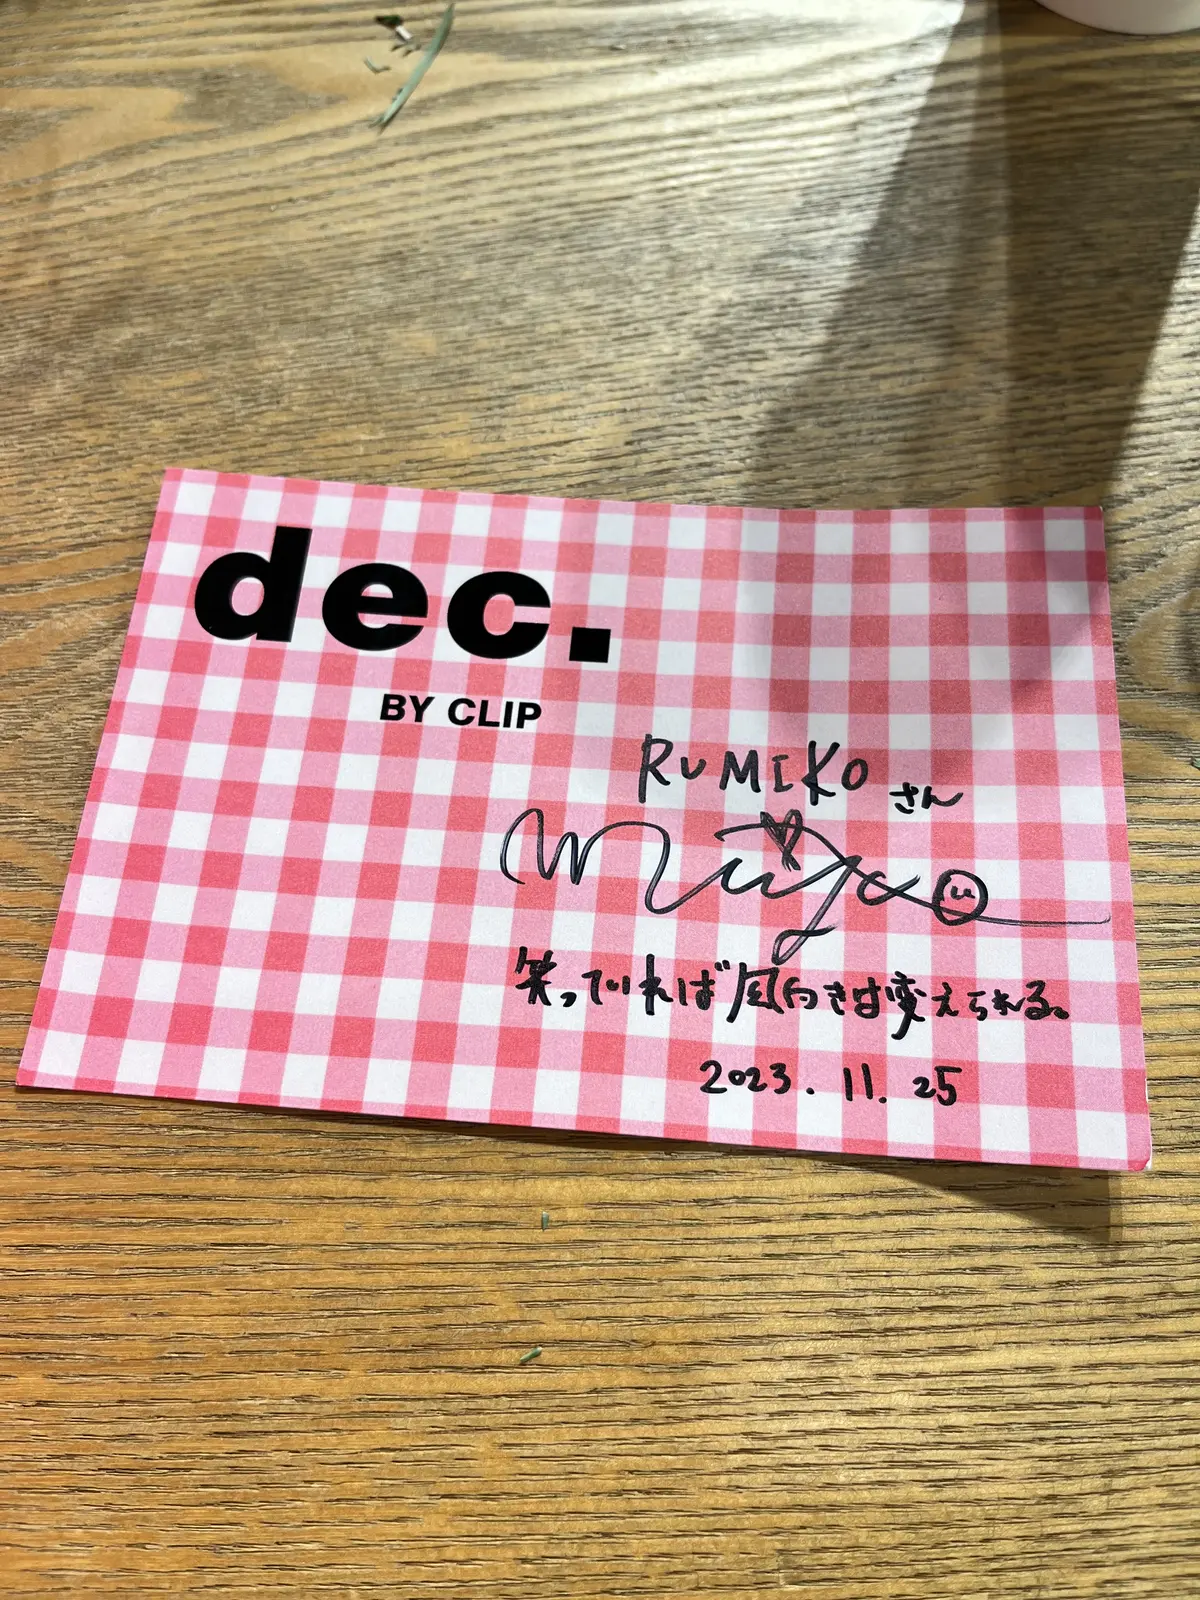 dec.
BY CLIP
RUMIKO さん
笑っていれば風向きは変えられる。
2023.11.25